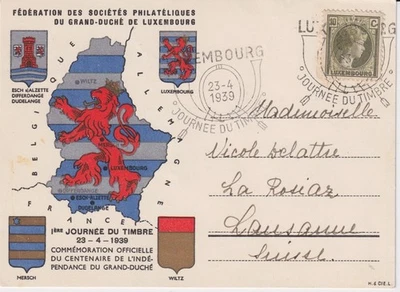 FÉDÉRATION DES SOCIÉTÉS PHILATÉLIQUES
DU GRAND-DUCHÉ DE LUXEMBOURG
ESCH S/ALZETTE
DIFFERDANGE
DUDELANGE
LUXEMBOURG
BELGIQUE
ALLEMAGNE
FRANCE
WILTZ
MERSCH
LUXEMBOURG
DIFFERDANGE
ESCH S/ALZETTE
DUDELANGE
1ÈRE JOURNÉE DU TIMBRE
23-4-1939
COMMÉMORATION OFFICIELLE
DU CENTENAIRE DE L'INDÉ-
PENDANCE DU GRAND-DUCHÉ
MERSCH
WILTZ
LUXEMBOURG
23-4
1939
JOURNÉE DU TIMBRE
LUXEMBOURG
JOURNÉE DU TIMBRE
LUXEMBOURG
Mademoiselle
Nicole Delattre
La Rosiaz
Lausanne
Suisse.